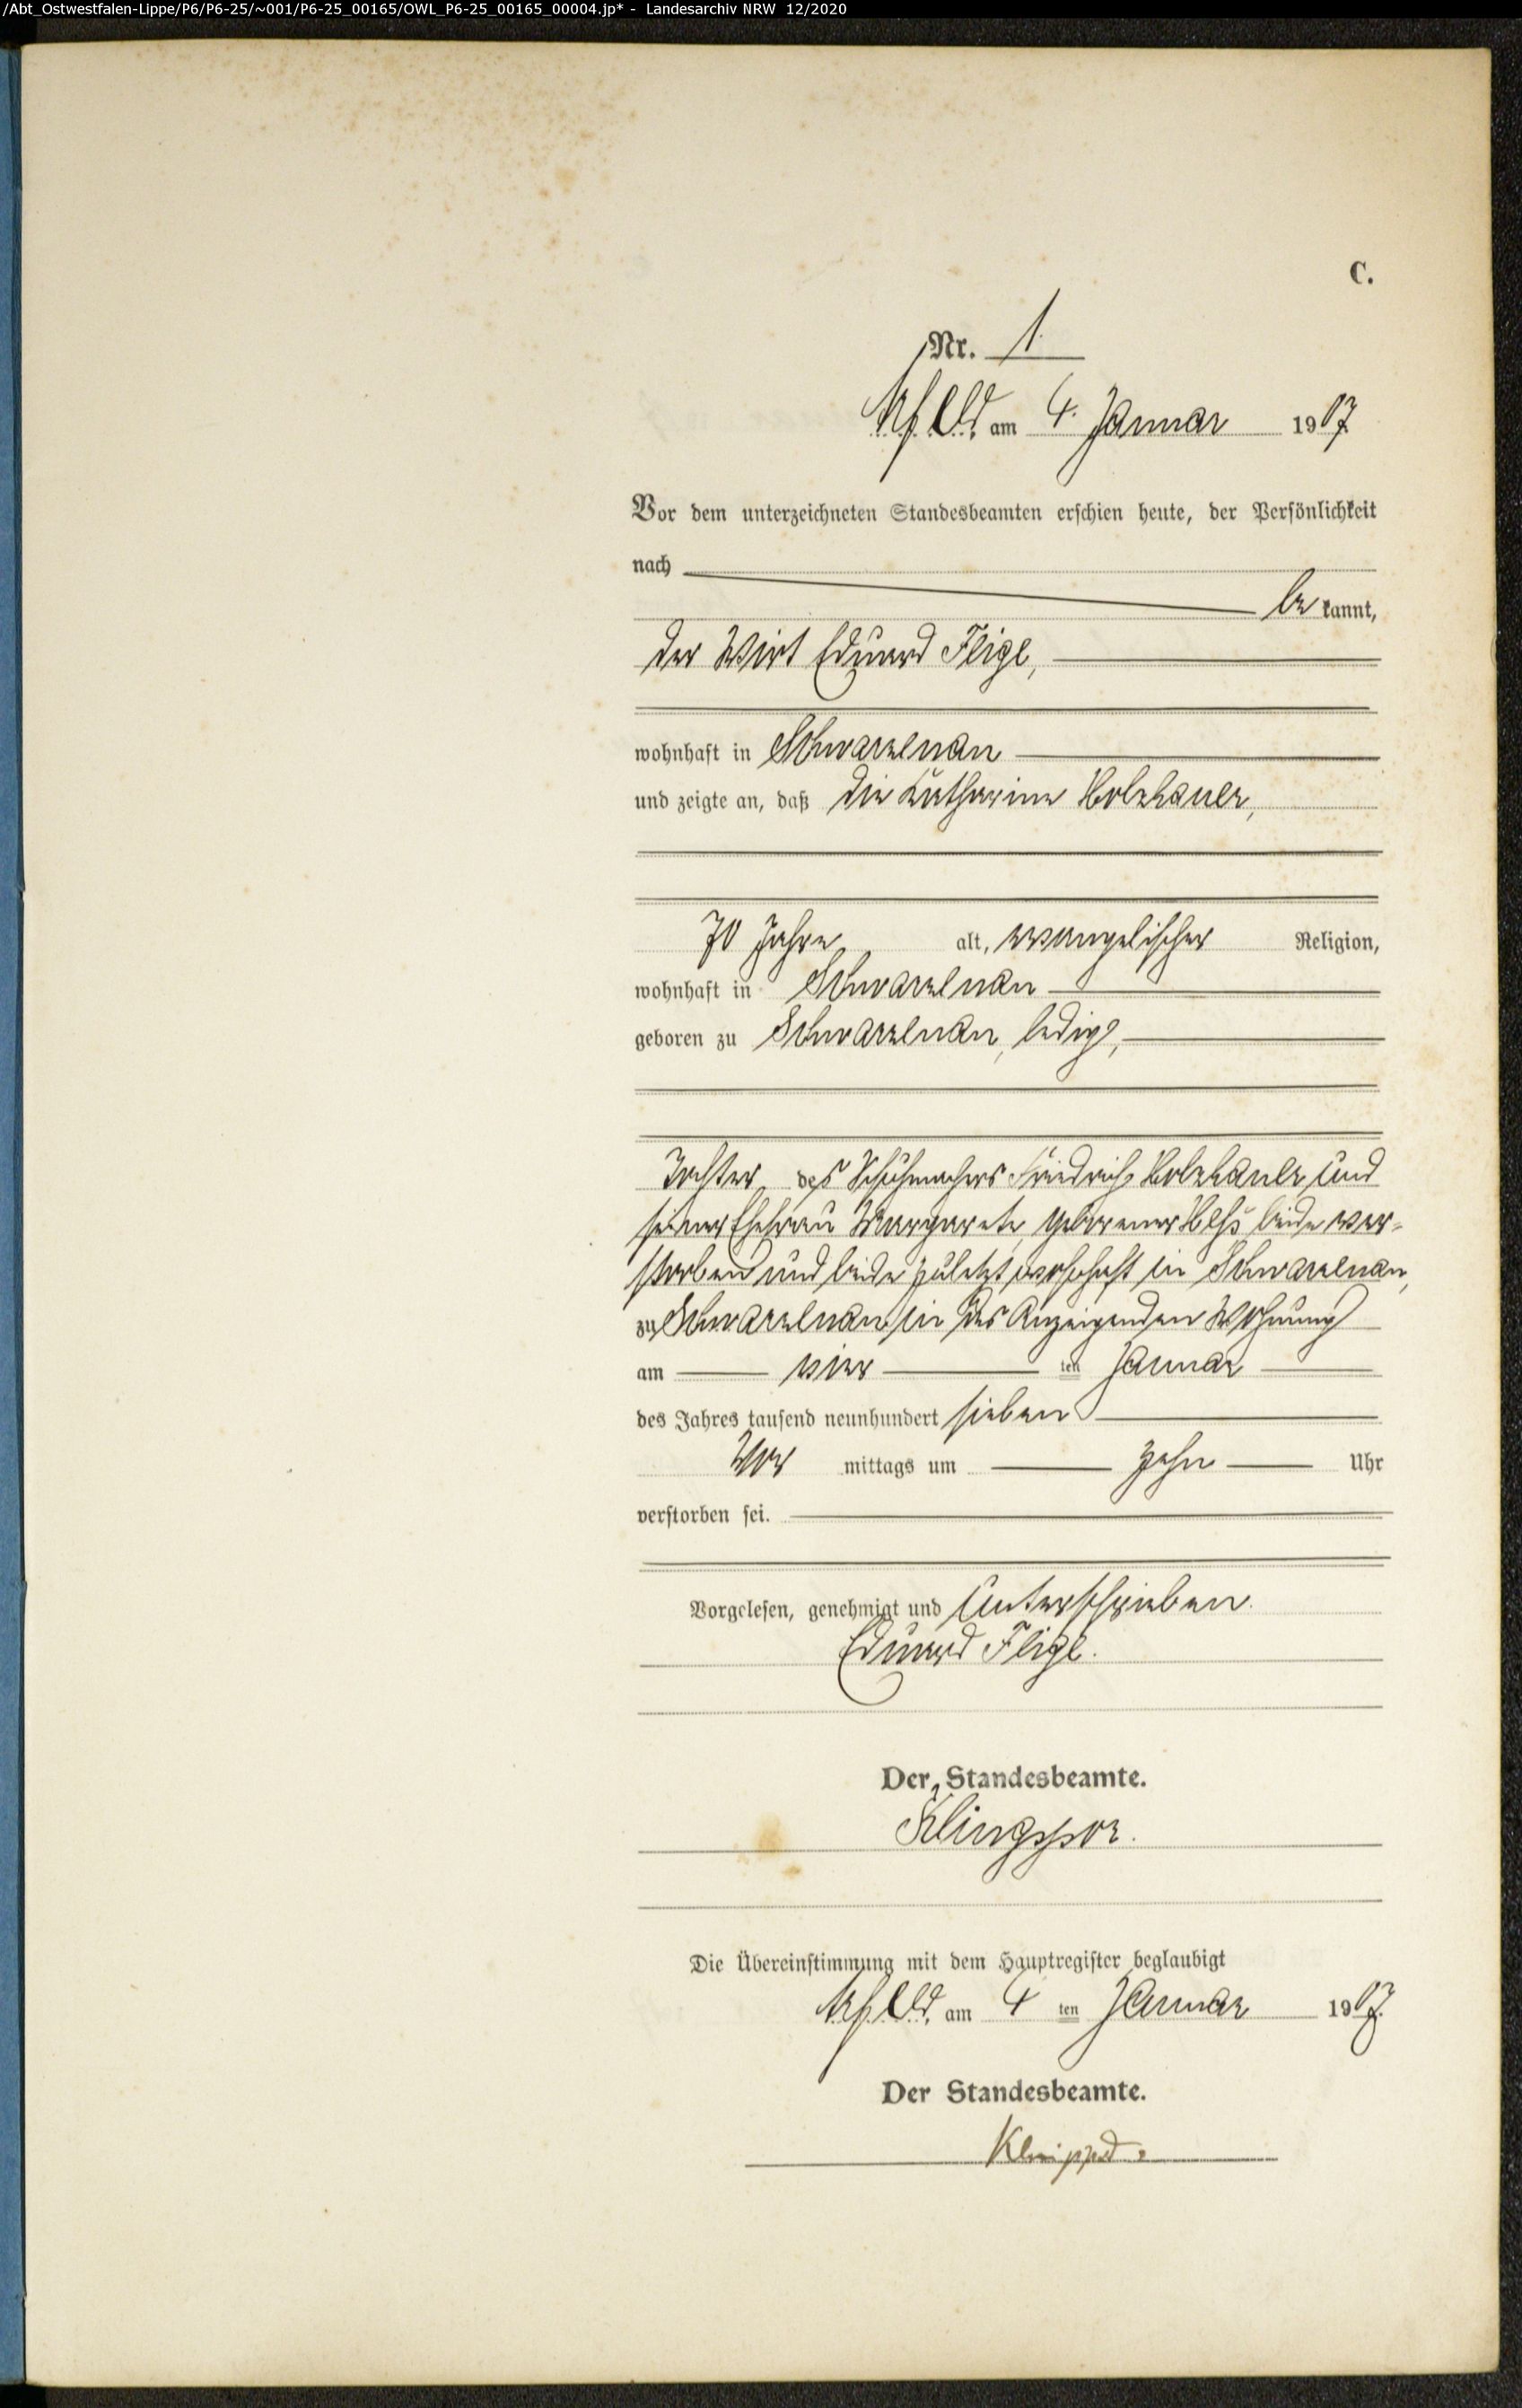 /Abt_Ostwestfalen-Lippe/P6/P6-25/~001/P6-25_00165/OWL_P6-25_00165_00004.jp* - Landesarchiv NRW 12/2020
C.
Nr. 1.
Arfeld am 4. Januar 1907
Vor dem unterzeichneten Standesbeamten erschien heute, der Persönlichkeit
nach
be kannt,
der Wirt Eduard Flige,
wohnhaft in Schwarzenau
und zeigte an, daß die Katharine Holzhauer,
70 Jahre alt, evangelischer Religion,
wohnhaft in Schwarzenau
geboren zu Schwarzenau, ledig,
Tochter des Schuhmachers Friedrich Holzhauer und
seiner Ehefrau Margarete, geborener Heß beide ver-
storben und beide zuletzt wohnhaft in Schwarzenau,
zu Schwarzenau in des Anzeigenden Wohnung
am vier ten Januar
des Jahres tausend neunhundert sieben
Vor mittags um zehn Uhr
verstorben sei.
Vorgelesen, genehmigt und unterschrieben.
Eduard Flige.
Der Standesbeamte.
Klingspor.
Die Übereinstimmung mit dem Hauptregister beglaubigt
Arfeld, am 4 ten Januar 1907.
Der Standesbeamte.